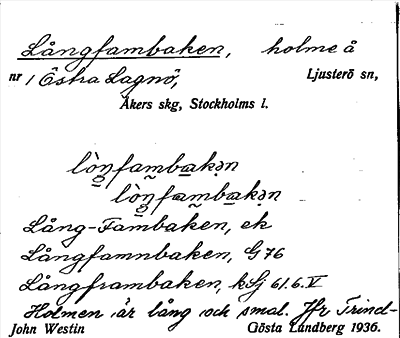 Långfambaken, holme å
nr 1 Östra Lagnö, Ljusterö sn,
Åkers skg, Stockholms l.
lòŋfambakən
lòŋfambakən
Lång-Fambaken, ek
Långfamnbaken, G 76
Långframbaken, kSj 61.6.V
Holmen är lång och smal. Jfr Trind-
John Westin Gösta Lundberg 1936.